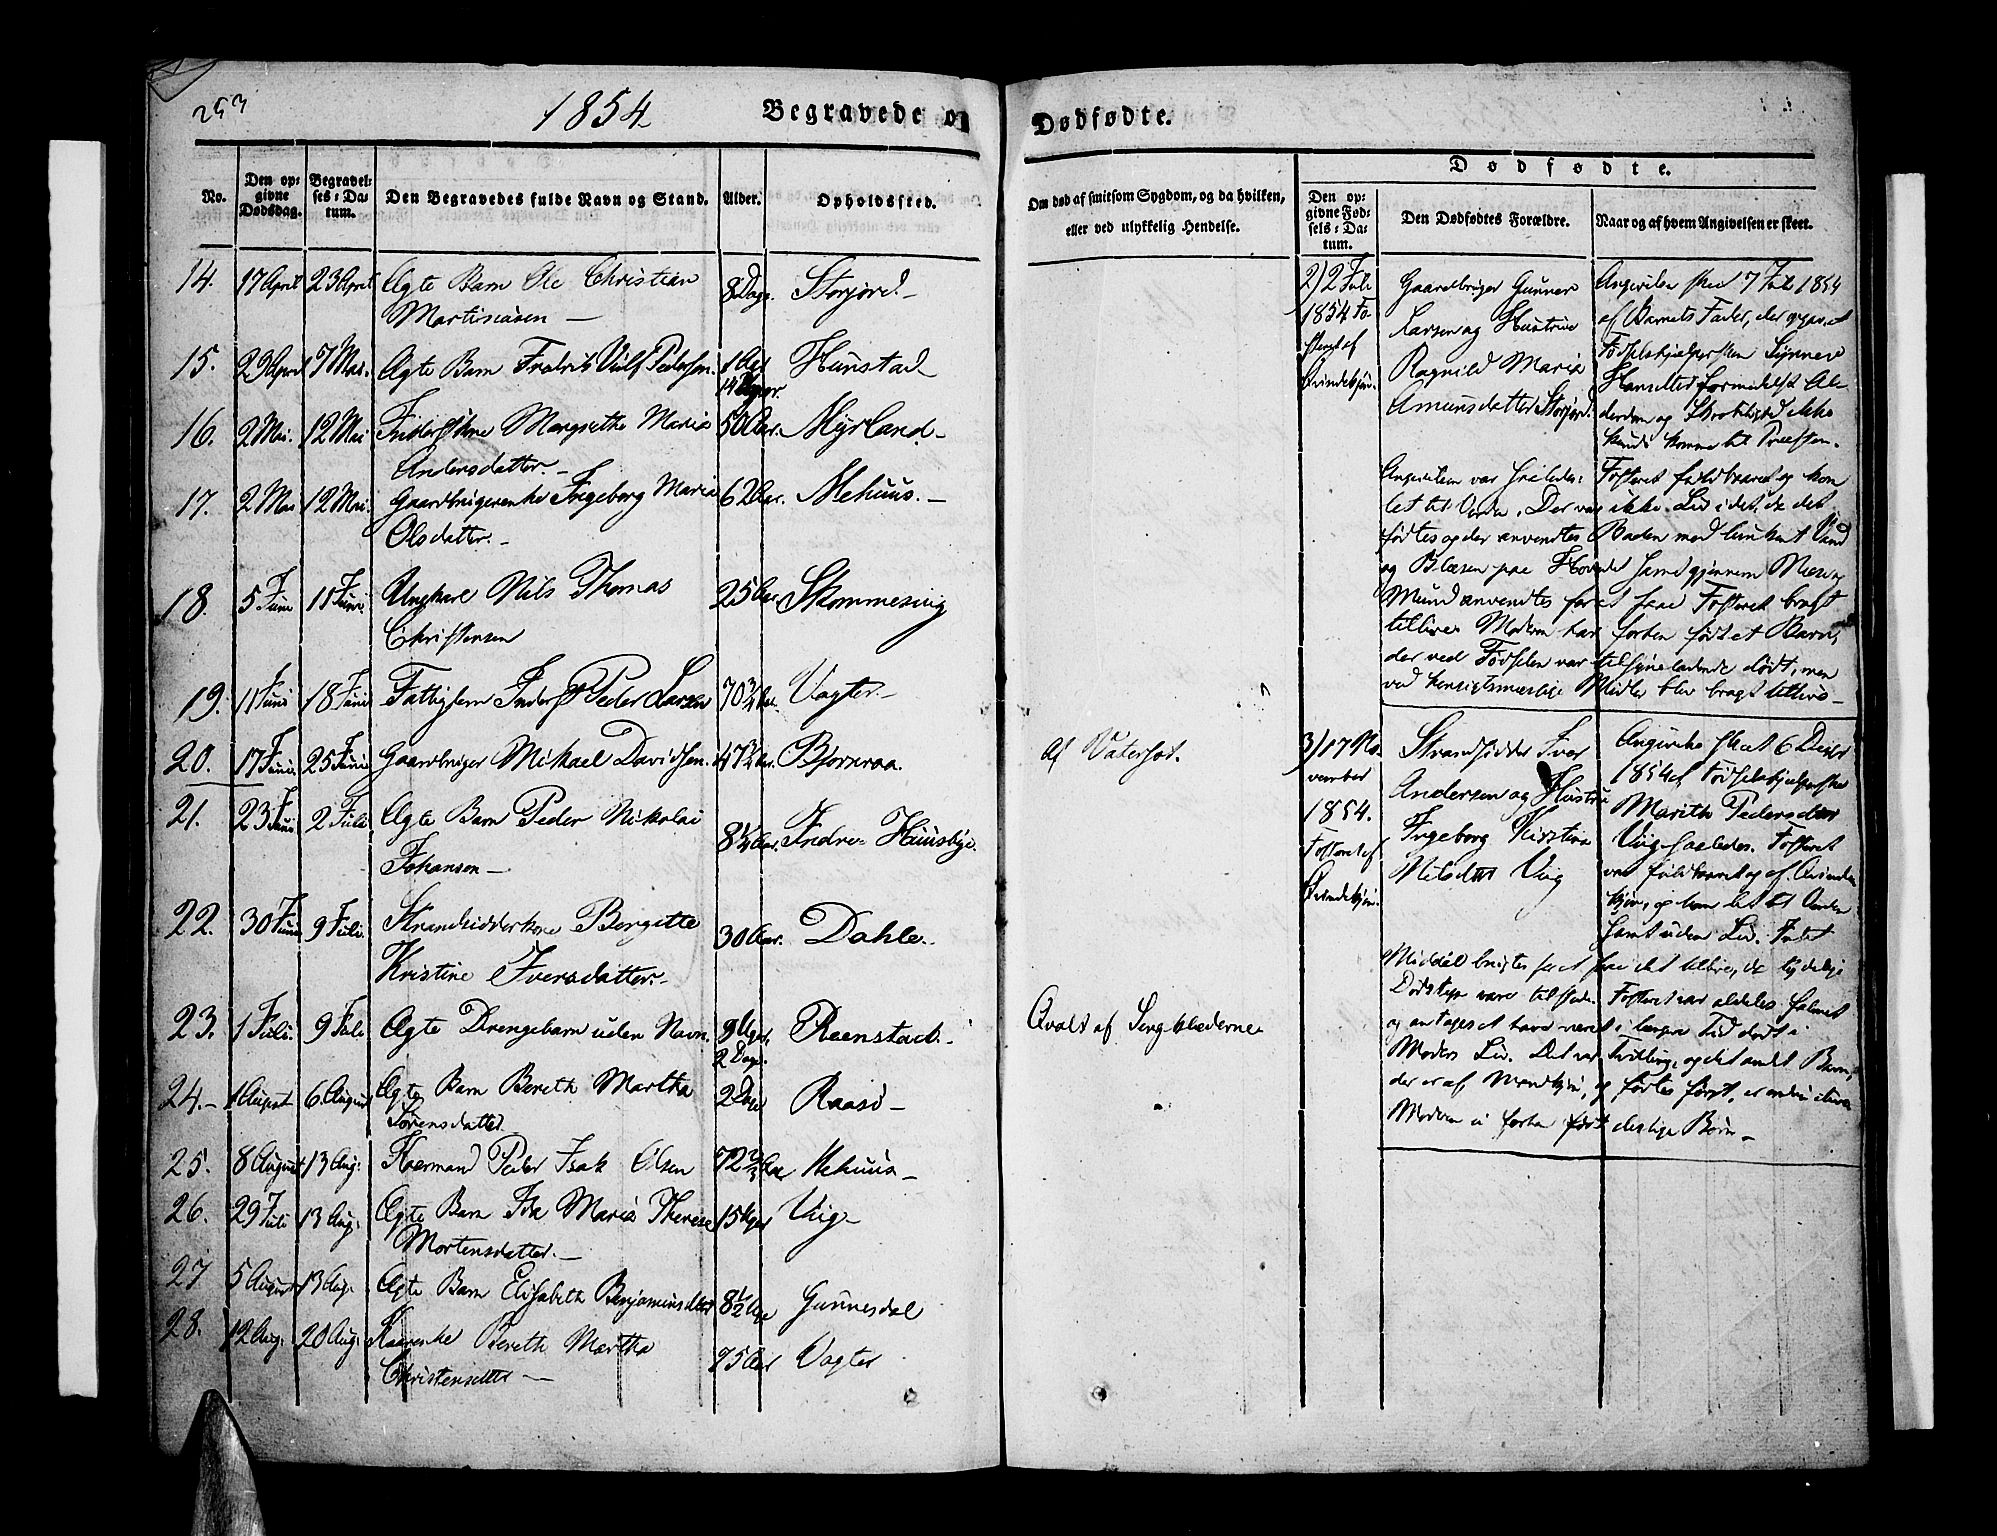 253
1854
Begravede o
Dødfødte.
No.
Den opgivne Dødsdag.
Begravelses-Datum.
Den Begravedes fulde Navn og Stand.
Alder.
Opholdssted.
Om død af smitsom Sygdom, og da hvilken,
eller ved ulykkelig Hendelse.
Dødfødte.
Den opgivne Fødsels-Datum.
Den Dødfødtes Forældre.
Naar og af hvem Angivelsen er skeet.
14. 17 April 23 April Ægte Barn Ole Christian 8 Dage. Storjord –
Martinusen –
15. 29 April 7 Mai. Ægte Barn Fredrik Pedersen. 1 Aar Hunstad –
14 Dager.
16. 2 Mai. 12 Mai Margrethe Maria 50 Aar. Myrland –
Andersdatter. –
17. 2 Mai 12 Mai. Gaardbrugerenke Ingeborg Maria 62 Aar. Mehuus. –
Olsdatter. –
18. 5 Juni 11 Juni Ungkarl Nils Thomas 25 Aar
Christensen
19. 11 Juni 18 Juni Fattiglem Peder Larsen 70 3/4 Aar. Vagter. –
20. 17 Juni 25 Juni Gaardbruger Mikael Davidsen. 47 1/2 Aar. Bjornraa. af Vatersot.
21. 23 Juni 2 Juli Ægte Barn Peder Nikolai 8 1/4 Aar. Indre Huusbye.
Johansen –
22. 30 Juni 9 Juli. Strandsidderkone Bergitte 30 Aar. Dahle. –
Kristine Iversdatter. –
23. 1 Juli. 9 Juli Ægte Drengebarn uden Navn. 9 Uger Reenstad. – Qvalt af Sengklæderne
2 Dage.
24. – 1 August 6 August Ægte Barn Bereth Martha 2 Dage Raasø –
Sørensdatter
25. 8 August 13 Aug: Kaarmand Peder Isak Olsen 72 Aar Mehuus –
26. 29 Juli 13 Aug: Ægte Barn Ida Maria Therese 15 Uger Viig –
Mortensdatter. –
27 5 August 13 Aug. Ægte Barn Elisabeth Benjaminsdatter 8 1/2 Gunnesdal
28. 12 Aug: 20 Aug: Kaarenke Bereth Martha 75 Aar Vagter
Christensdatter –
2) 2 Juli
1854 Fo-
steret af
Qvindekjøn.
Gaardbruger Gunner
Larsen og Hustrue
Ragnild Maria
Amunsdatter Storjord.
Angivelsen skeed 7 Juli 1854
af Barnets Fader, der opgav, at
Fødselshjelpersken Synneve
Hansdatter formedelst Al-
derdom og Skrøbelighed ikke
kunde komme til Præsten. –
Angivelsen var saaledes: Fosteret fuldbaaret og kom
let til Verden. Der var ikke Liv i det, da det
fødtes og der anvendtes Baden med lunkent Vand
og Blæsen paa Hovedet samt gjennem Næse og
Mund anvendtes for at faae Fosteret bragt
tillive. Modern har forhen født et Barn,
der ved Fødselen var tilsyneladende dødt, men
ved hensigtsmæssige Midler blev bragt tillive –
3) 17 No-
vember
1854.
Fosteret af
Qvindekjøn.
Strandsidder Iver
Andersen og Hustrue
Ingeborg Kirstina
Nilsdatter Viig
Angivelse skeet 6 Decbr
1854 af Fødselshjelperske
Marith Pedersdatter
Viig saaledes. Fosteret
var fuldbaaret og af Qvinde-
kjøn, og kom let til Verden
samt uden Liv. Intet
Middel brugtes for at faae det tillive, da tydelige
Dødstegn vare tilstede. Fosteret var aldeles falmet
og antages at have været i længere Tid dødt i
Moders Liv. Det var Tvilling, og det andet Barn,
der er af Mandkjøn, og fødtes først, er endnu ilive
Modern ei forhen født deslige Børn –